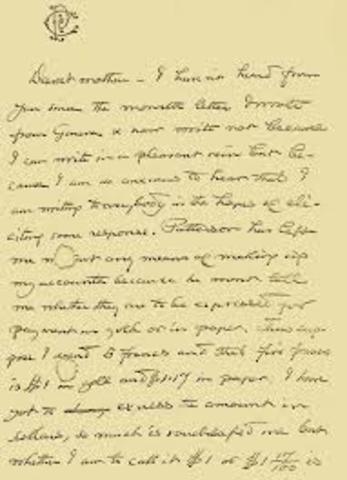 Dearest mother - I have not heard from
you since the monster letter I wrote
from Geneva & now write not because
I can write in a pleasant vein but be-
cause I am so anxious to hear that I
am writing to everybody in the hopes of eli-
citing some response. Patterson has left
me without any means of making up
my accounts because he wont tell
me whether they are to be expressed for
payment in gold or in paper.
I spend 5 francs and that five francs
is $1 in gold and $1.17 in paper. I have
got to express the amount in
dollars, so much is vouchsafed me but
whether I am to call it $1 or $1 17/100 is